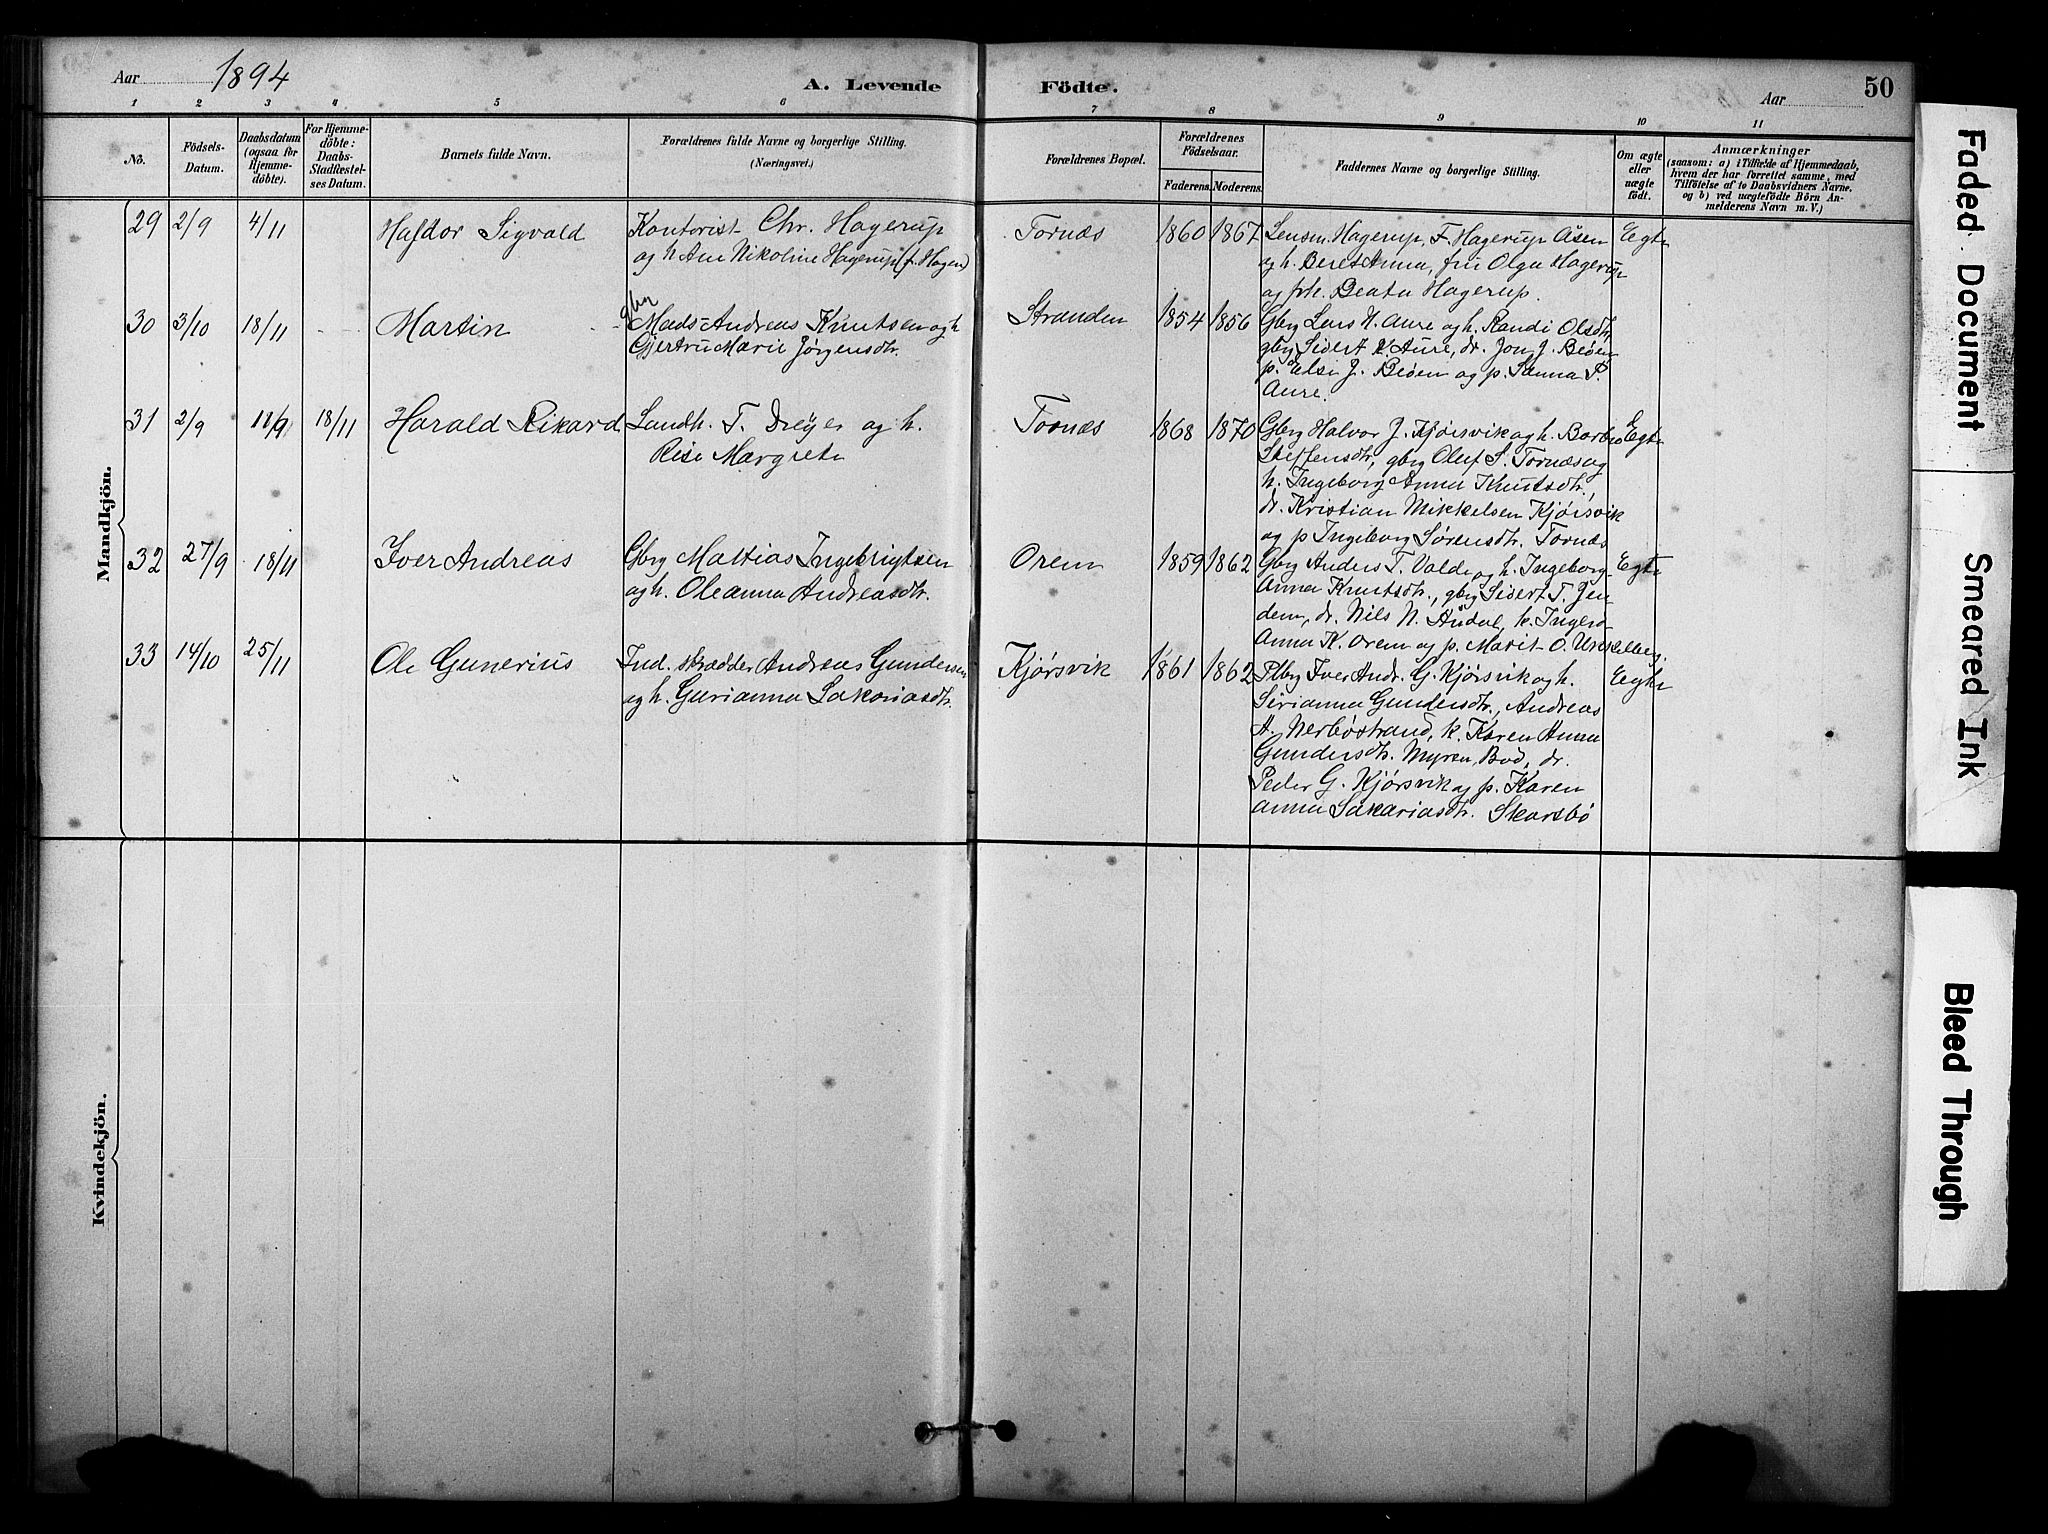 Aar 1894 A. Levende Födte. Aar 50
1 2 3 4 5 6 7 8 9 10 11
No. Födsels-Datum. Daabsdatum (ogsaa for Hjemmedöbte). For Hjemmedöbte: Daabs-Stadfæstelses Datum. Barnets fulde Navn. Forældrenes fulde Navne og borgerlige Stilling. (Næringsvei.) Forældrenes Bopæl. Forældrenes Födselsaar. Faderens. Moderens. Faddernes Navne og borgerlige Stilling. Om ægte eller uægte födt. Anmærkninger (saasom: a) i Tilfælde af Hjemmedaab, hvem der har forrettet samme, med Tilföielse af to Daabsvidners Navne, og b) ved uægtefödte Börn Anmelderens Navn m. V.)
Mandkjön.
29 2/9 4/11 Hafdor Sigvald Kontorist Chr. Hagerup Tornæs 1860 1867 Lensm. Hagerup, F. Hagerup Åsen Egte
og h. Ane Nikoline Hagerup (f. Hagen) og h. Beret Anna, fru Olga Hagerup
og frk. Beata Hagerup.
30 3/10 18/11 Martin gbr Mads Andreas Knutsen og h Stranden 1854 1856 Gbrg Lars N. Aure og h. Randi Olsdtr,
Gjertru Marie Jörgensdtr. gbrg Sivert K Aure, dr. Jon J. Beöen
p. Else J. Beöen og p. Sanna P.
Aure.
31 2/9 11/9 18/11 Harald Rikard Landh. T. Dreyer og h. Tornæs 1868 1870 Gbrg Halvor J. Kjörsvik og h. Barbro Egte
Risi Margrete Steffensdtr, gbrg Oluf S. Tornæs og
h. Ingeborg Anna Knutsdtr,
dr. Kristian Mikkelsen Kjörsvik
og p Ingeborg Sörensdtr. Tornæs
32 27/9 18/11 Iver Andreas Gbrg Mattias Ingebrigtsen Orem 1859 1862 Gbrg Anders T. Valde og h. Ingeborg Egte
og h. Oleanna Andreasdtr. Anna Knutsdtr., gbrg Sivert T. Jen
dem, dr. Nils N. Hudal, k. Ingerd
Anna K. Orem og p. Marit O. Urskelberg.
33 14/10 25/11 Ole Gunerius Ind. skrædder Andreas Gundersen Kjörsvik 1861 1862 Plbrg Iver Andr. G. Kjörsvik og h. Egte
og h. Gurianna Sakariasdtr. Sirianna Gundersdtr., Andreas
A. Nerböstrand, k. Karen Anna
Gundersdtr. Myren, Bud, dr.
Peder G. Kjörsvik og p. Karen
Anna Sakariasdtr. Skarsbö
Kvindekjön.
Faded Document
Smeared Ink
Bleed Through